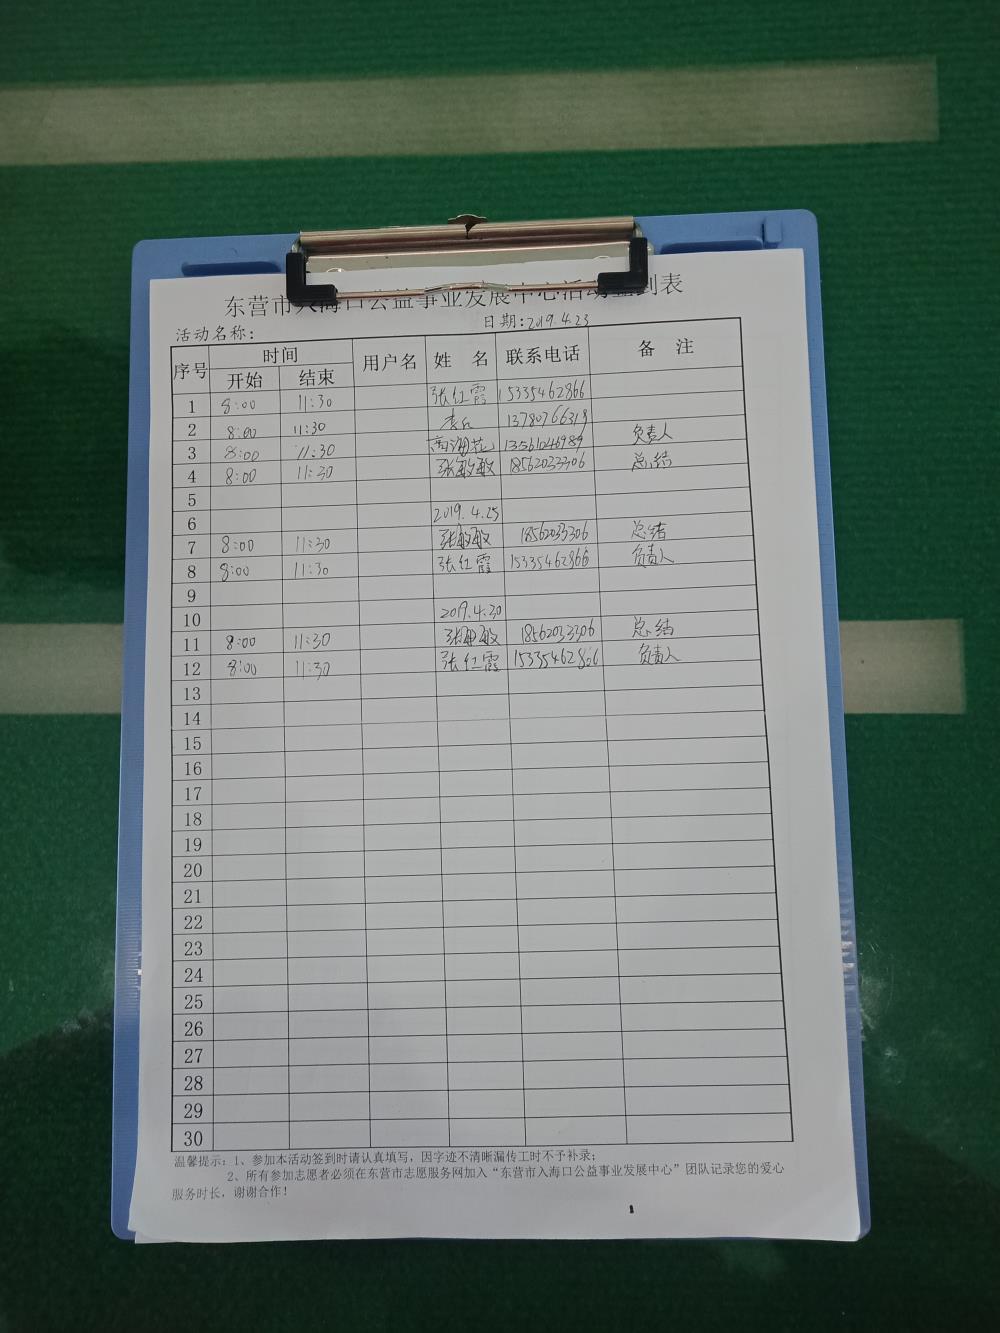 东营市入海口公益事业发展中心活动签到表
活动名称: 日期:2019.4.23
序号 时间 用户名 姓 名 联系电话 备 注
开始 结束
1 8:00 11:30 张红霞 15335462866
2 8:00 11:30 13780766319
3 8:00 11:30 高海花 13561046989 负责人
4 8:00 11:30 张敏敏 18562033306 总结
5
6 2019.4.25
7 8:00 11:30 张敏敏 18562033306 总结
8 8:00 11:30 张红霞 15335462866 负责人
9
10 2019.4.30
11 8:00 11:30 张敏敏 18562033306 总结
12 8:00 11:30 张红霞 15335462866 负责人
13
14
15
16
17
18
19
20
21
22
23
24
25
26
27
28
29
30
温馨提示:1、参加本活动签到时请认真填写，因字迹不清晰漏传工时不予补录;
2、所有参加志愿者必须在东营市志愿服务网加入“东营市入海口公益事业发展中心”团队记录您的爱心
服务时长，谢谢合作!
1